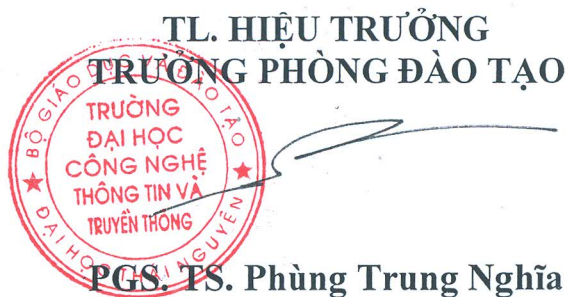 TL. HIỆU TRƯỞNG
TRƯỞNG PHÒNG ĐÀO TẠO
BỘ GIÁO DỤC VÀ ĐÀO TẠO
TRƯỜNG
ĐẠI HỌC
CÔNG NGHỆ
THÔNG TIN VÀ
TRUYỀN THÔNG
ĐẠI HỌC THÁI NGUYÊN
PGS. TS. Phùng Trung Nghĩa